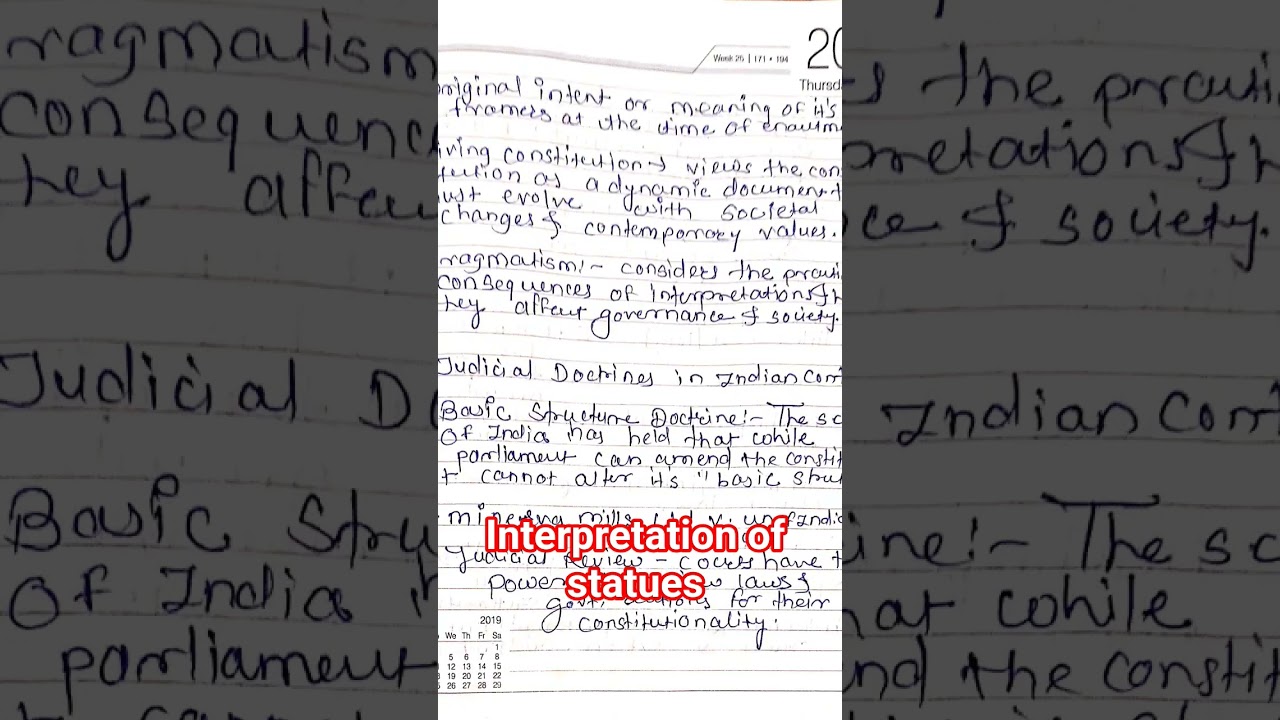 Week 25 | 171 • 194
20
Thursd
original intent or meaning of it's
framers at the time of enactm
iving constitution → views the con
tution as a dynamic document t
ust evolve with societal
changes & contemporary values.
ragmatism:- considers the practi
consequences of interpretations & h
hey affect governance & society.
Judicial Doctrines in Indian Con
Basic Structure Doctrine:- The sc
Of India has held that while
parliament can amend the constit
t cannot alter it's "basic stru
minerva mills Ltd v. un of Indi
Interpretation of
statues
Judicial Review - courts have t
power laws &
govt actions for their
constitutionality.
2019
We Th Fr Sa
1
5 6 7 8
12 13 14 15
19 20 21 22
26 27 28 29
ragmatism
consequenc
hey affect
Judicial D
Basic Stru
Of India
parliament
s the practi
pretations & h
ce & society.
Indian Con
ine:- The sc
hat while
nd the constit